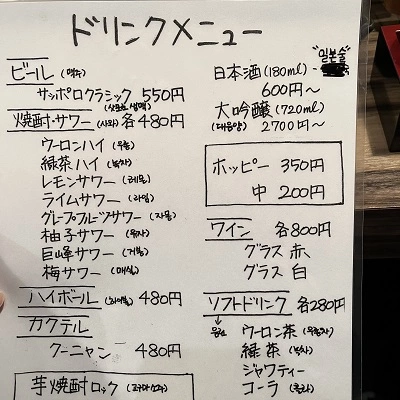 ドリンクメニュー
ビール (맥주)
サッポロクラシック 550円
(삿포로 생맥)
焼酎・サワー (사와) 各480円
ウーロンハイ (우롱)
緑茶ハイ (녹차)
レモンサワー (레몬)
ライムサワー (라임)
グレープフルーツサワー (자몽)
柚子サワー (유자)
巨峰サワー (거봉)
梅サワー (매실)
ハイボール (하이볼) 480円
カクテル
クーニャン 480円
芋焼酎ロック (고구마소주)
"일본술"
日本酒 (180ml)
600円〜
大吟醸 (720ml)
(대음양) 2700円〜
ホッピー 350円
中 200円
ワイン 各800円
グラス 赤
グラス 白
ソフトドリンク 各280円
ウーロン茶 (우롱차)
緑茶 (녹차)
ジャワティー
コーラ (콜라)